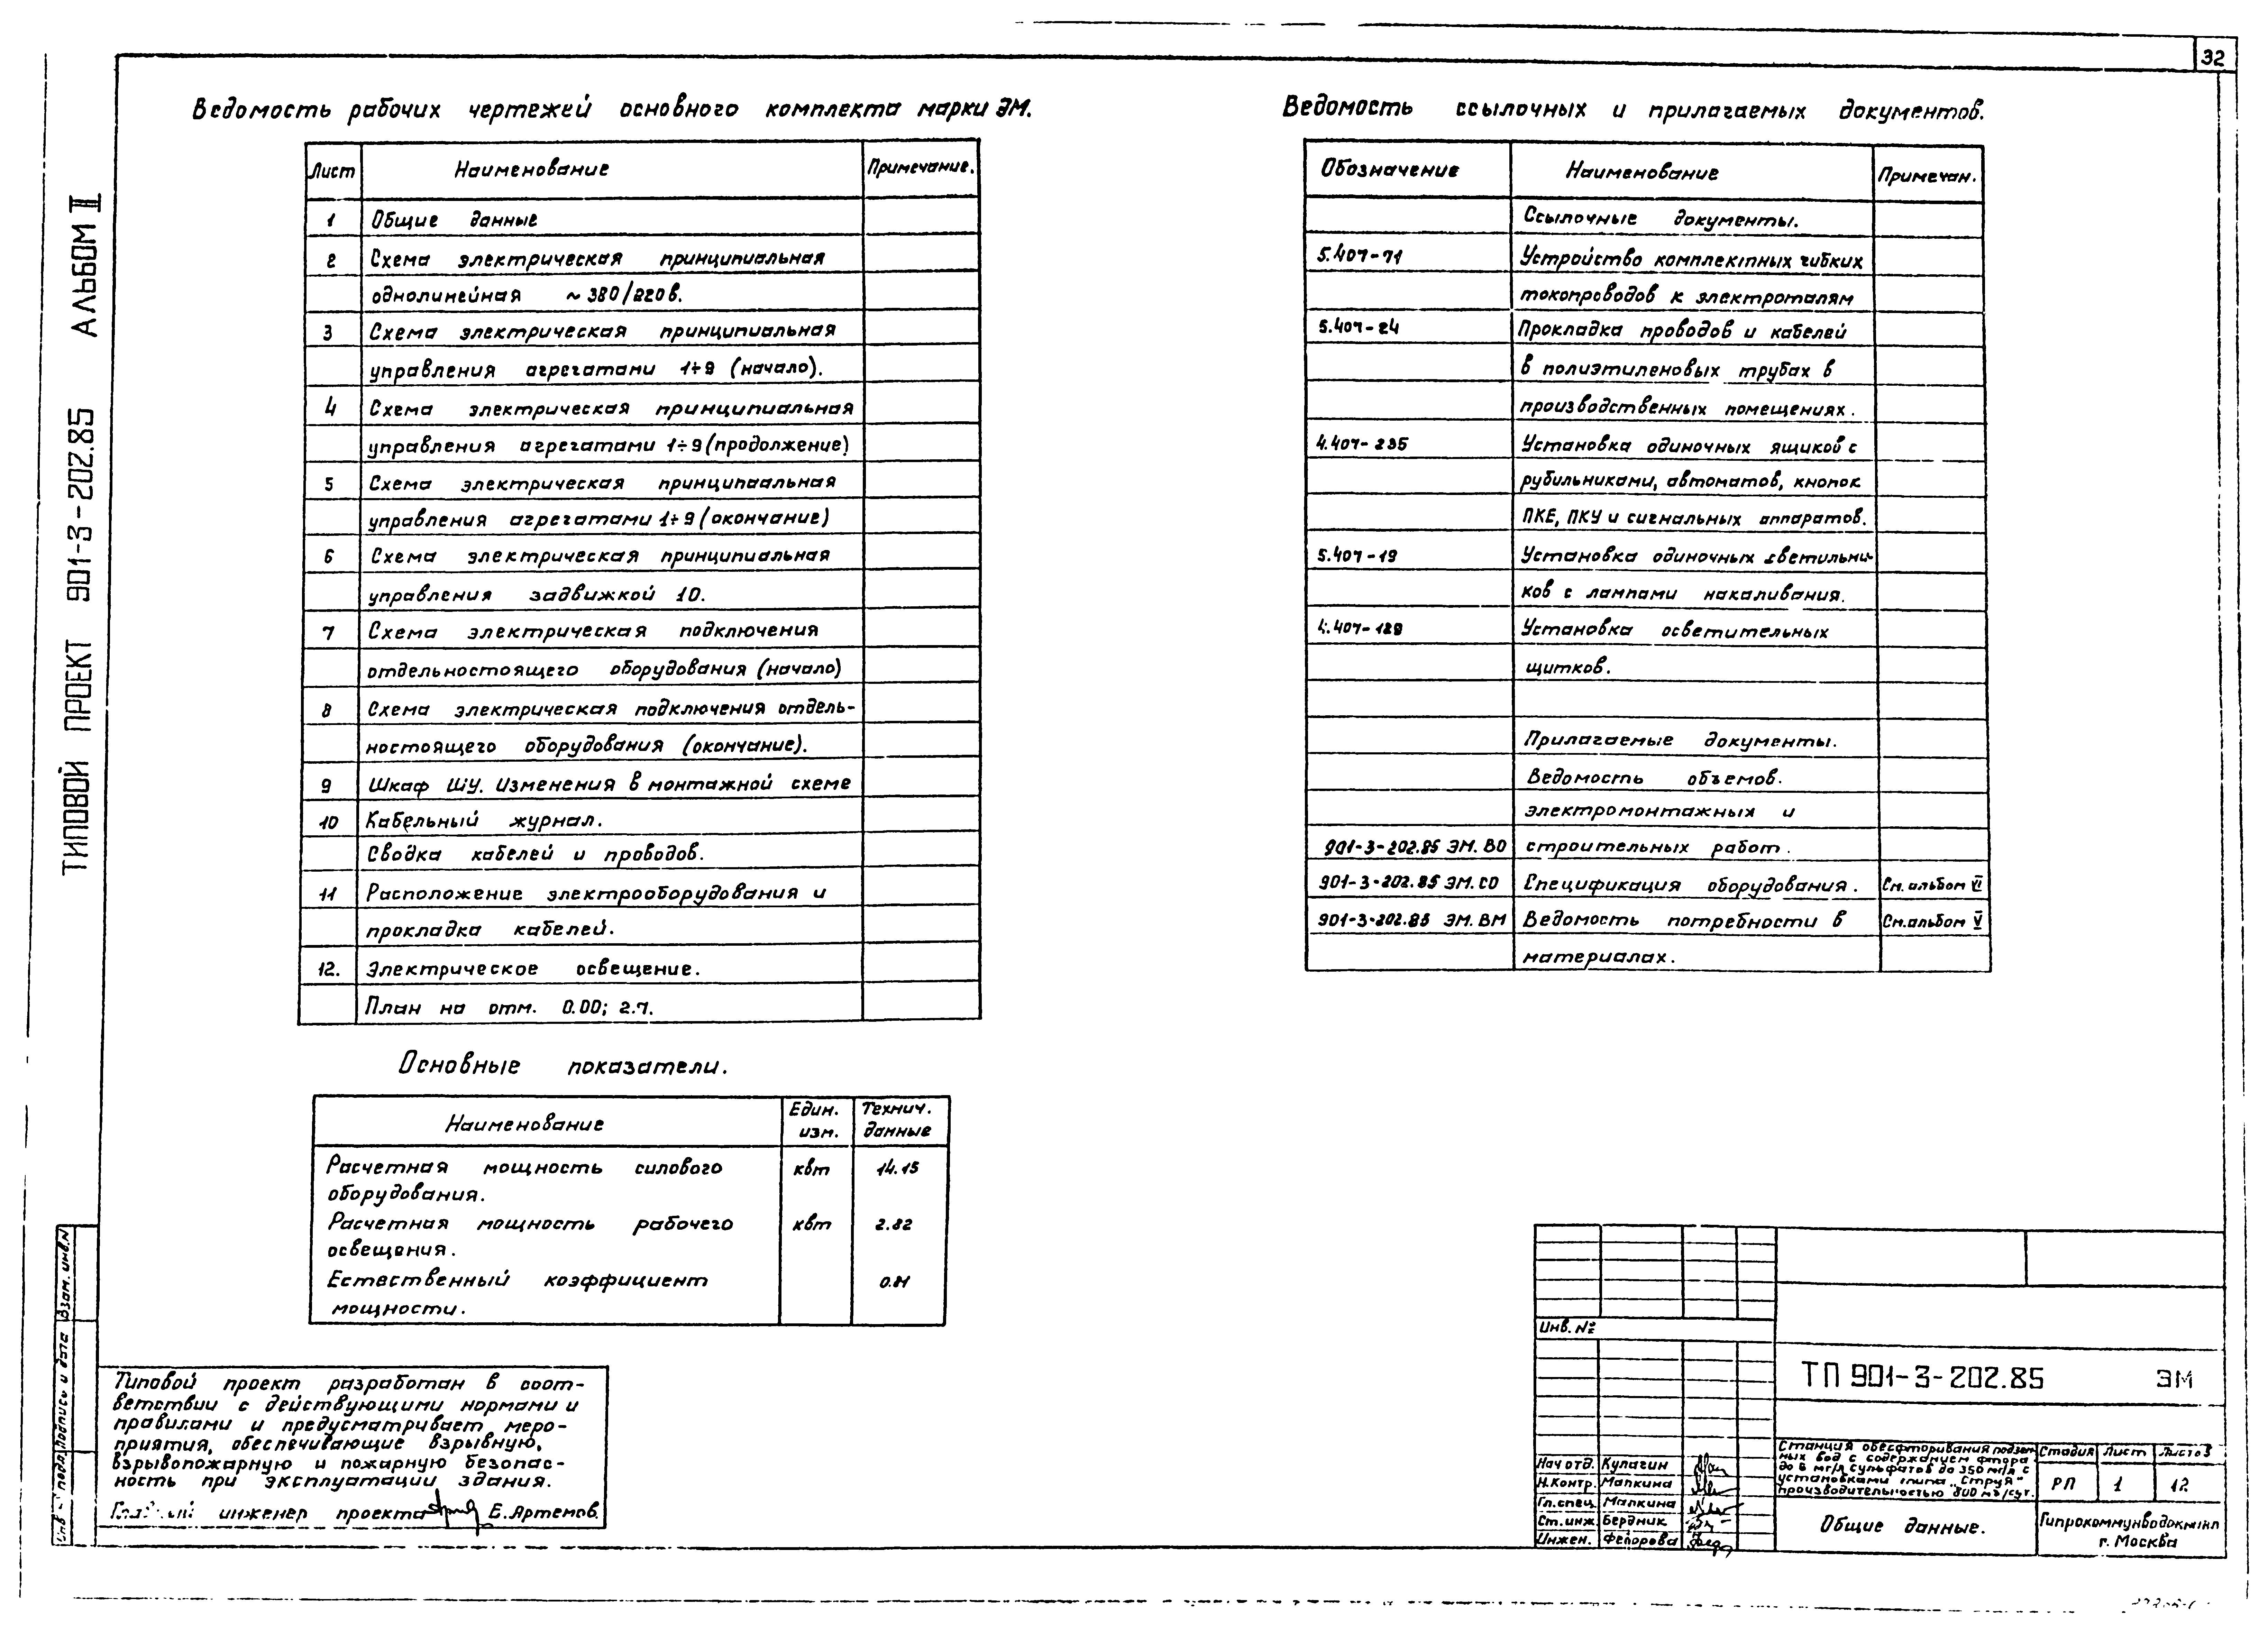 32
ТИПОВОЙ ПРОЕКТ 901-3-202.85 АЛЬБОМ II
Ведомость рабочих чертежей основного комплекта марки ЭМ.
Лист Наименование Примечание.
1 Общие данные
2 Схема электрическая принципиальная
однолинейная ~380/220в.
3 Схема электрическая принципиальная
управления агрегатами 1÷9 (начало).
4 Схема электрическая принципиальная
управления агрегатами 1÷9 (продолжение)
5 Схема электрическая принципиальная
управления агрегатами 1÷9 (окончание)
6 Схема электрическая принципиальная
управления задвижкой 10.
7 Схема электрическая подключения
отдельностоящего оборудования (начало)
8 Схема электрическая подключения отдель-
ностоящего оборудования (окончание).
9 Шкаф ШУ. Изменения в монтажной схеме
10 Кабельный журнал.
Сводка кабелей и проводов.
11 Расположение электрооборудования и
прокладка кабелей.
12. Электрическое освещение.
План на отм. 0.00; 2.7.
Основные показатели.
Наименование Един. изм. Технич. данные
Расчетная мощность силового квт 14.15
оборудования.
Расчетная мощность рабочего квт 2.82
освещения.
Естественный коэффициент
мощности.
Типовой проект разработан в соот-
ветствии с действующими нормами и
правилами и предусматривает меро-
приятия, обеспечивающие взрывную,
взрывопожарную и пожарную безопас-
ность при эксплуатации здания.
инженер проекта Е. Артемов.
Взам. инв. N
Подпись и дата
Инв. подл.
Ведомость ссылочных и прилагаемых документов.
Обозначение Наименование Примечан.
Ссылочные документы.
5.407-71 Устройство комплектных гибких
токопроводов к электроталям
5.407-24 Прокладка проводов и кабелей
в полиэтиленовых трубах в
производственных помещениях.
4.407-235 Установка одиночных ящиков с
рубильниками, автоматов, кнопок
ПКЕ, ПКУ и сигнальных аппаратов.
5.407-19 Установка одиночных светильни-
ков с лампами накаливания.
4.407-129 Установка осветительных
щитков.
Прилагаемые документы.
Ведомость объемов.
электромонтажных и
901-3-202.85 ЭМ. ВО строительных работ.
901-3-202.85 ЭМ. СО Спецификация оборудования. См. альбом VI
901-3-202.85 ЭМ. ВМ Ведомость потребности в См. альбом V
материалах.
Инв. №
ТП 901-3-202.85 ЭМ
Станция обесфторивания подзем-
ных вод с содержанием фтора
до 6 мг/л сульфатов до 350 мг/л с
установками типа „Струя"
производительностью 800 м3/сут.
Стадия Лист Листов
РП 1 12
Нач отд. Кулагин
Н.Контр. Мапкина
Гл. спец. Мапкина
Ст. инж. Бердник
Инжен. Федорова
Общие данные.
Гипрокоммунводоканал
г. Москва